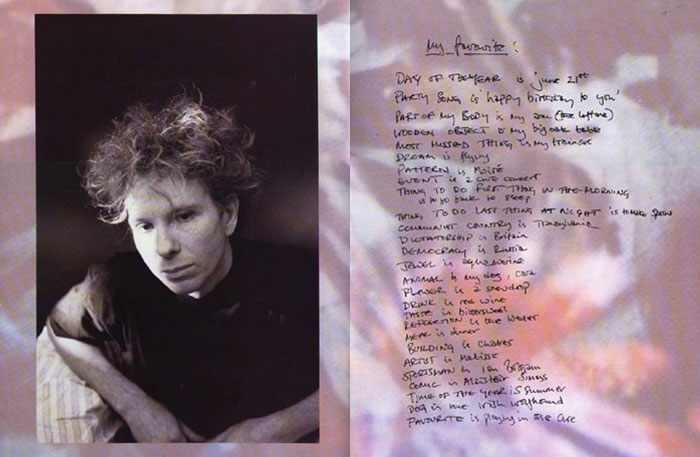 My favourite :
DAY OF THE YEAR is june 21st
PARTY SONG is 'happy birthday to you'
PART OF MY BODY is my
WOODEN OBJECT is my big oak table
MOST MISSED THING is my trainset
DREAM is flying
PATTERN is
EVENT is a live concert
THING TO DO FIRST THING IN THE MORNING
is to go back to sleep
THING TO DO LAST THING AT NIGHT is to
COMMUNIST COUNTRY is Transylvania
DICTATORSHIP is Britain
DEMOCRACY is Russia
JEWEL is aquamarine
ANIMAL is my dog,
FLOWER is a snowdrop
DRINK is red wine
TASTE is bittersweet
REFLECTION is the water
MEAL is dinner
BUILDING is
ARTIST is Matisse
SPORTSMAN is Ian
COMIC is Alistair
TIME OF THE YEAR is Summer
DOG is the irish wolfhound
FAVOURITE is playing in the Cure